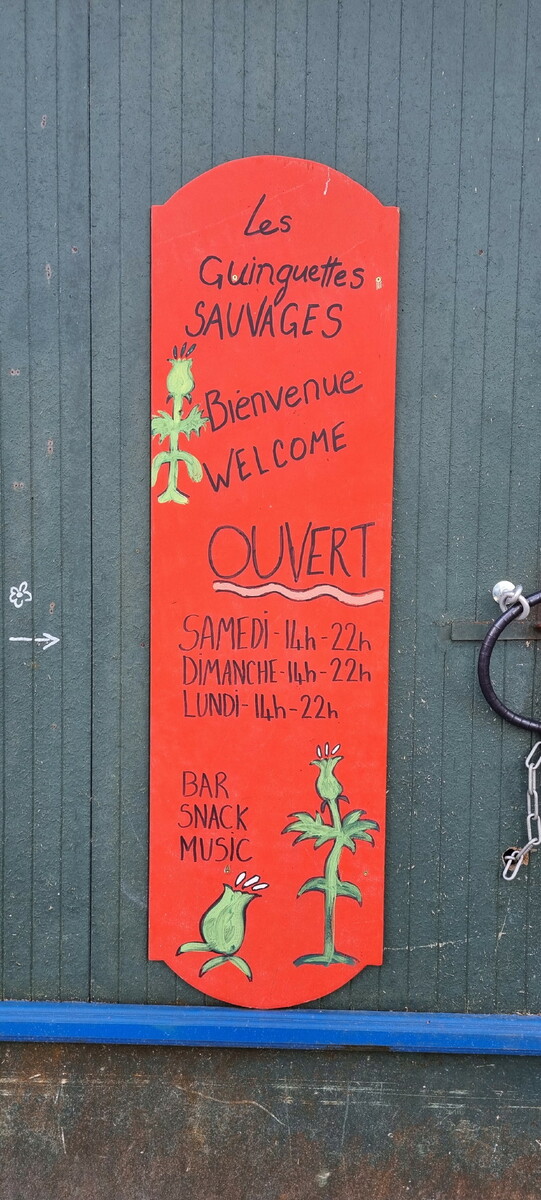 Les
Guinguettes
SAUVAGES
Bienvenue
WELCOME
OUVERT
SAMEDI-14h-22h
DIMANCHE-14h-22h
LUNDI-14h-22h
BAR
SNACK
MUSIC